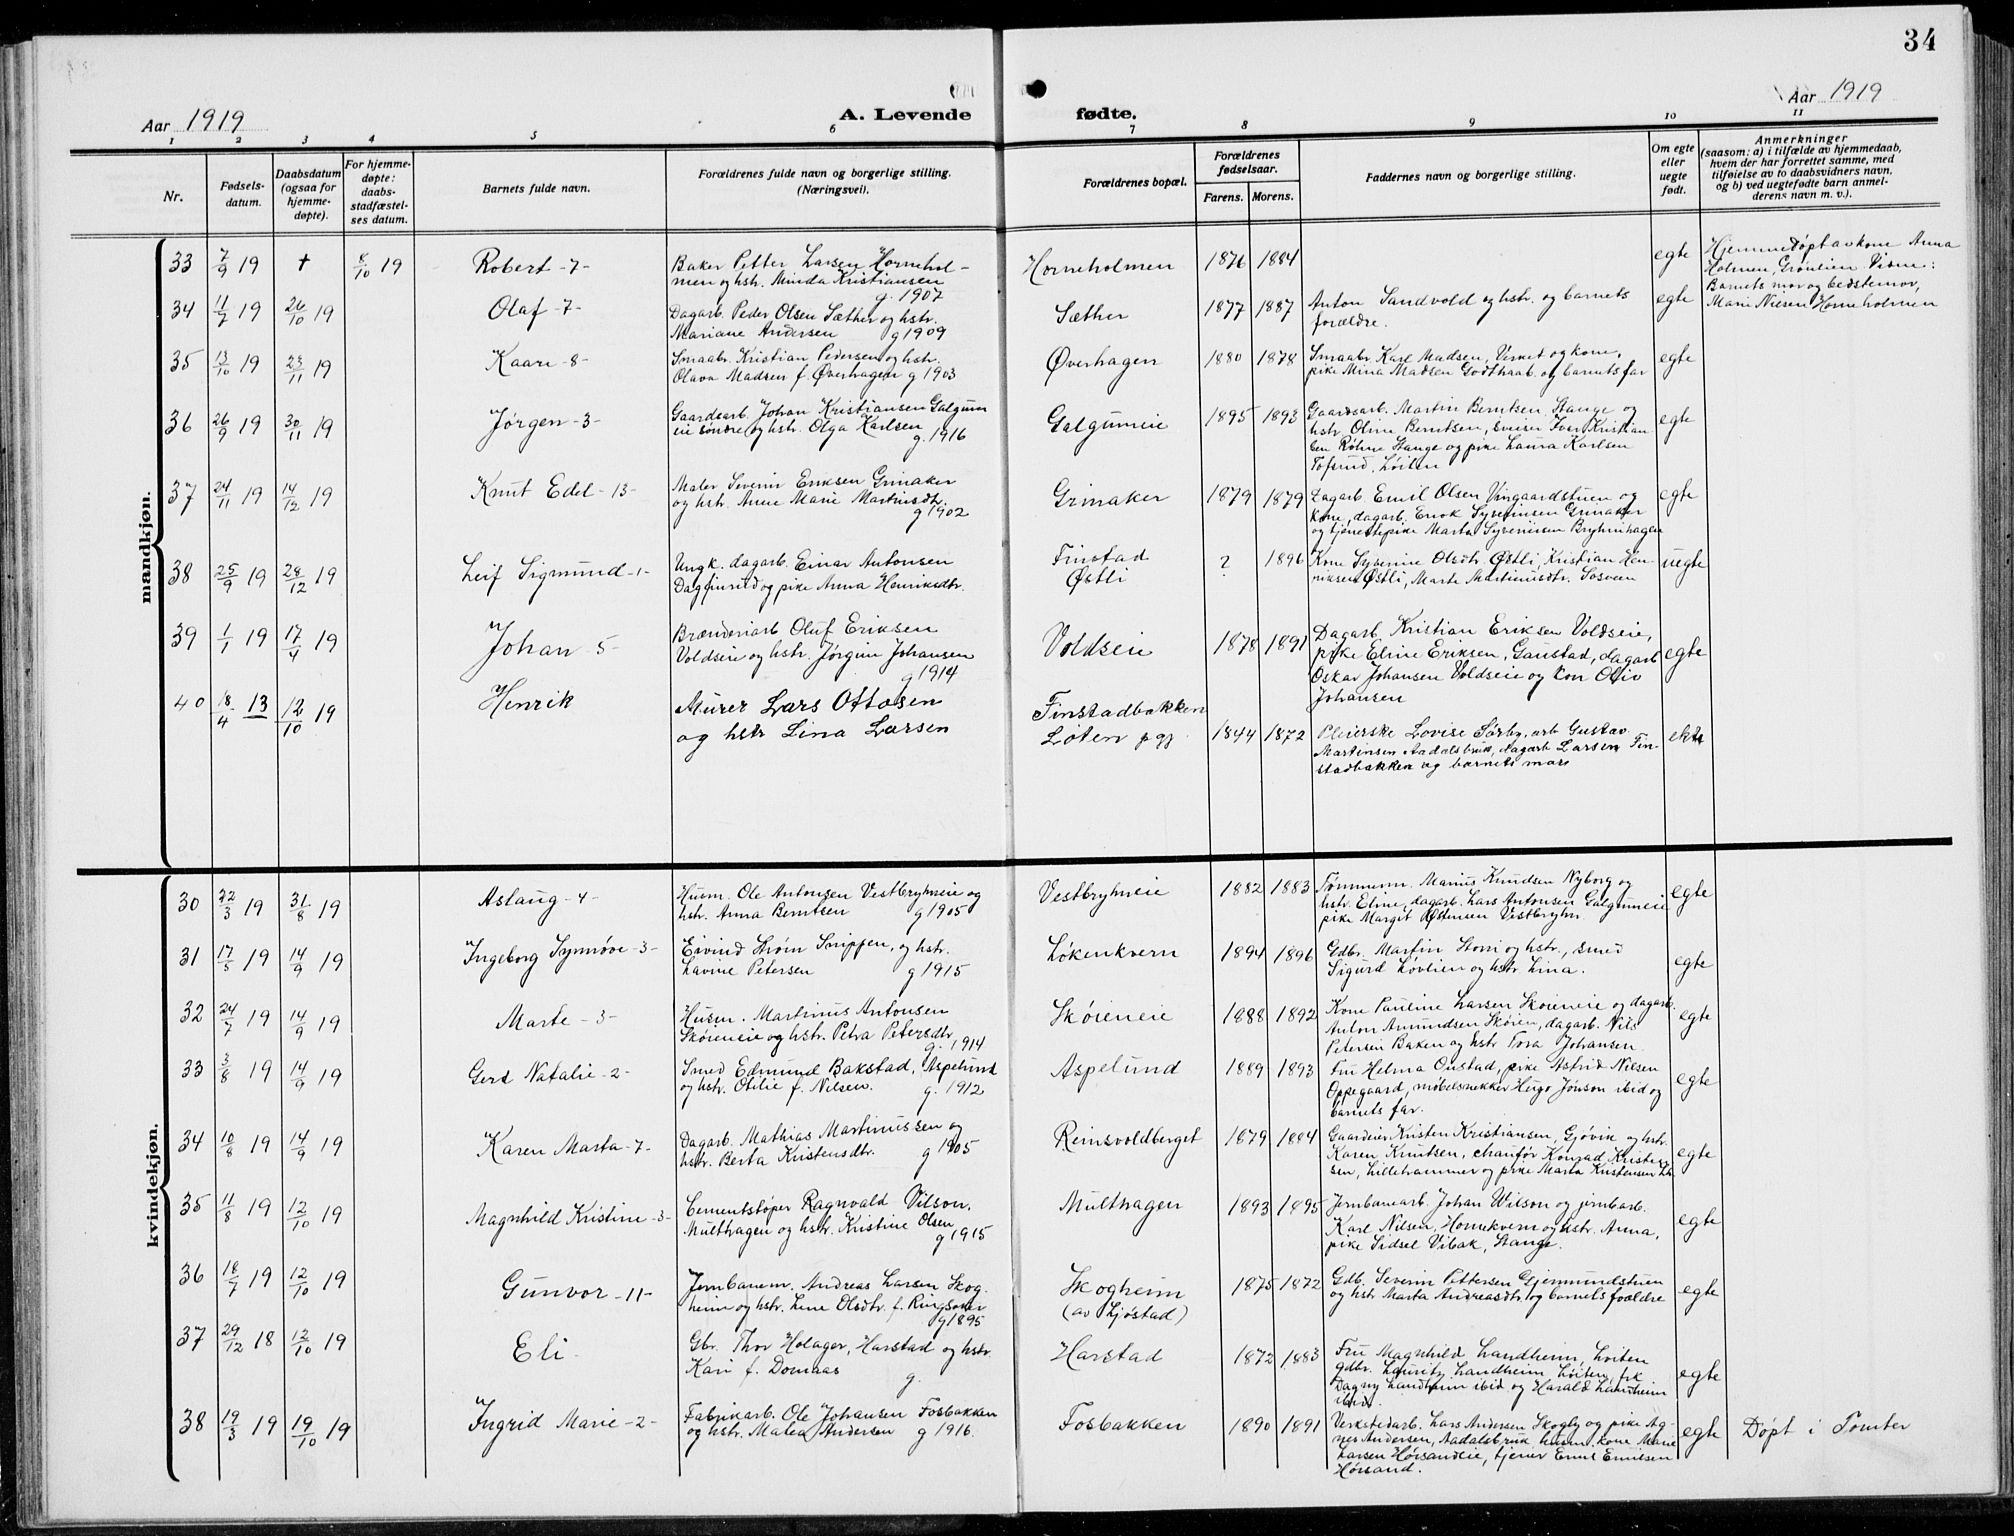 34
Aar 1919
A. Levende fødte.
Aar 1919
1 2 3 4 5 6 7 8 9 10 11
Nr.
Fødsels-
datum.
Daabsdatum
(ogsaa for
hjemme-
døpte).
For hjemme-
døpte:
daabs-
stadfæstel-
ses datum.
Barnets fulde navn.
Forældrenes fulde navn og borgerlige stilling.
(Næringsvei).
Forældrenes bopæl.
Forældrenes
fødselsaar.
Farens. Morens.
Faddernes navn og borgerlige stilling.
Om egte
eller
uegte
født.
Anmerkninger
(saasom: a) i tilfælde av hjemmedaab,
hvem der har forrettet samme, med
tilføielse av to daabsvidners navn,
og b) ved uegtefødte barn anmel-
derens navn m. v.).
mandkjøn.
33 7/9 19 + 8/10 19 Robert -7-
Baker Petter Larsen Hornehol-
men og hstr. Minda Kristiansen
g. 1907
Horneholmen 1876 1884 egte
Hjemmedøpt av kone Anna
Holmen, Grønlien. Vidne:
Barnets mor og bedstemor,
Marie Nilsen Horneholmen
34 11/7 19 26/10 19 Olaf -7-
Dagarb. Peder Olsen Sæther og hstr.
Mariane Andersen g 1909
Sæther 1877 1887
Anton Sandvold og hstr. og barnets
forældre.
egte
35 13/10 19 23/11 19 Kaare -8-
Smaabr. Kristian Pedersen og hstr.
Olava Madsen f. Øverhagen g 1903
Øverhagen 1880 1878
Smaabr Karl Madsen, Viret og kone,
pike Mina Madsen Godthaab og barnets far
egte
36 26/9 19 30/11 19 Jørgen -3-
Gaardsarb. Johan Kristiansen Galgum
eie søndre og hstr. Olga Karlsen
g. 1916
Galgumeie 1895 1893
Gaardsarb. Martin Berntsen, Stange og
hstr. Oline Berntsen, sveiser Iver Kristian
sen Røhne Stange og pike Laura Karlsen
Tofsrud, Løiten
egte
37 24/11 19 14/12 19 Knut Edel -13-
Maler Severin Eriksen Grinaker
og hstr. Anne Marie Martinsdtr.
g 1902
Grinaker 1879 1879
Dagarb. Emil Olsen Vingaardstuen og
kone, dagarb. Enok Syverinsen Grinaker
og tjenestepike Marta Syverinsen Bryhnihagen
egte
38 25/9 19 28/12 19 Leif Sigmund -1-
Ungk. dagarb. Einar Antonsen
Dagfinrud og pike Anna Henriksdtr.
Finstad
Østli
? 1896
Kone Syverine Olsdtr. Østli, Kristian Hen-
riksen Østli, Marte Martinusdtr. Sosveen
uegte
39 1/1 19 17/4 19 Johan -5-
Brænderiarb Oluf Eriksen
Voldseie og hstr. Jørgine Johansen
g 1914
Voldseie 1878 1891
Dagarb. Kristian Eriksen Voldseie,
pike Eline Eriksen, Gaustad, dagarb
Oskar Johansen Voldseie og kon
Johansen
egte
40 18/4 13 12/10 19 Henrik
Murer Lars Ottosen
og hstr Lina Larsen
Finstadbakken
Løten pgj
1844 1872
Pleierske Lovise Sørby, arb Gustav
Martinsen Aadalsbruk, dagarb Larsen Fin-
stadbakken og barnets mors
ekte
kvindekjøn.
30 22/3 19 31/8 19 Aslaug -4-
Husm. Ole Antonsen Vestbryhneie og
hstr. Anna Berntsen g 1905
Vestbryhneie 1882 1883
Tømmerm. Marius Knudsen Nyborg og
hstr. Eline, dagarb. Lars Antonsen Galgumeie
pike Margit Ottinsen Vestbryhn.
egte
31 17/5 19 14/9 19 Ingeborg Synnøve -3-
Eivind Strøm Snippen, og hstr.
Lavine Petersen g 1915
Løkenkvern 1894 1896
Gdbr. Martin Storri og hstr., smed
Sigurd Løvlien og hstr Lina.
egte
32 24/7 19 14/9 19 Marte -3-
Husm. Martinus Antonsen
Skøieneie og hstr. Petra Petersdtr.
g. 1914
Skøieneie 1888 1892
Kone Pauline Larsen Skøieneie og dagarb.
Anton Amundsen Skøien, dagarb. Nils
Petersen Baken og hstr Tora Johansen.
egte
33 3/8 19 14/9 19 Gerd Natalie -2-
Smed Edmund Bakstad, Aspelund
og hstr. Otilie f. Nilsen. g. 1912
Aspelund 1889 1893
Fru Helma Onstad, pike Astrid Nilsen
Oppegaard, møbelsnekker Hugo Jonson ibid og
barnets far.
egte
34 10/8 19 14/9 19 Karen Marta -7-
Dagarb. Mathias Martinussen og
hstr. Berta Kristensdtr. g 1905
Reinsvoldberget 1879 1884
Gaardeier Kristen Kristiansen, Gjøvik og hstr.
Karen Knutsen, chauför Konrad Kristen
sen, Lillehammer og pike Marta Kristensen Lh.
egte
35 11/8 19 12/10 19 Magnhild Kristine -3-
Cementstøper Ragnvald Vilson,
Multhagen og hstr. Kristine Olsen
g 1915
Multhagen 1893 1895
Jernbanearb Johan Wilson og jernbarb.
Karl Nilsen, Hornekvern og hstr. Anna,
pike Sidsel Vibak, Stange.
egte
36 18/7 19 12/10 19 Gunvor -11-
Jernbanem. Andreas Larsen Skog-
heim og hstr. Lene Olsdtr. f. Ringsaker
g 1895
Skogheim
(av Ljøstad)
1875 1872
Gdb. Severin Pettersen Gjemundstuen
og hstr Marta Andreasdtr. og barnets foældre
egte
37 29/12 18 12/10 19 Eli -
Gbr. Thor Holager, Harstad og hstr.
Kari f. Domaas g.
Harstad 1872 1883
Fru Magnhild Landheim, Løiten
gdbr. Lauritz Landheim Løiten, frk
Dagny Landheim ibid og Harald Landheim
ibid.
egte
38 19/3 19 19/10 19 Ingrid Marie -2-
Fabrikarb. Ole Johansen Fosbakken
og hstr. Malea Andersen g 1916.
Fosbakken 1890 1891
Verkstedarb. Lars Andersen Skogly og pike Ag-
nes Andersen, Aadalsbruk husm. kone Marie
Larsen Hørsandeie, tjener Emil Emilsen
Hørsand.
egte
Døpt i Tomter